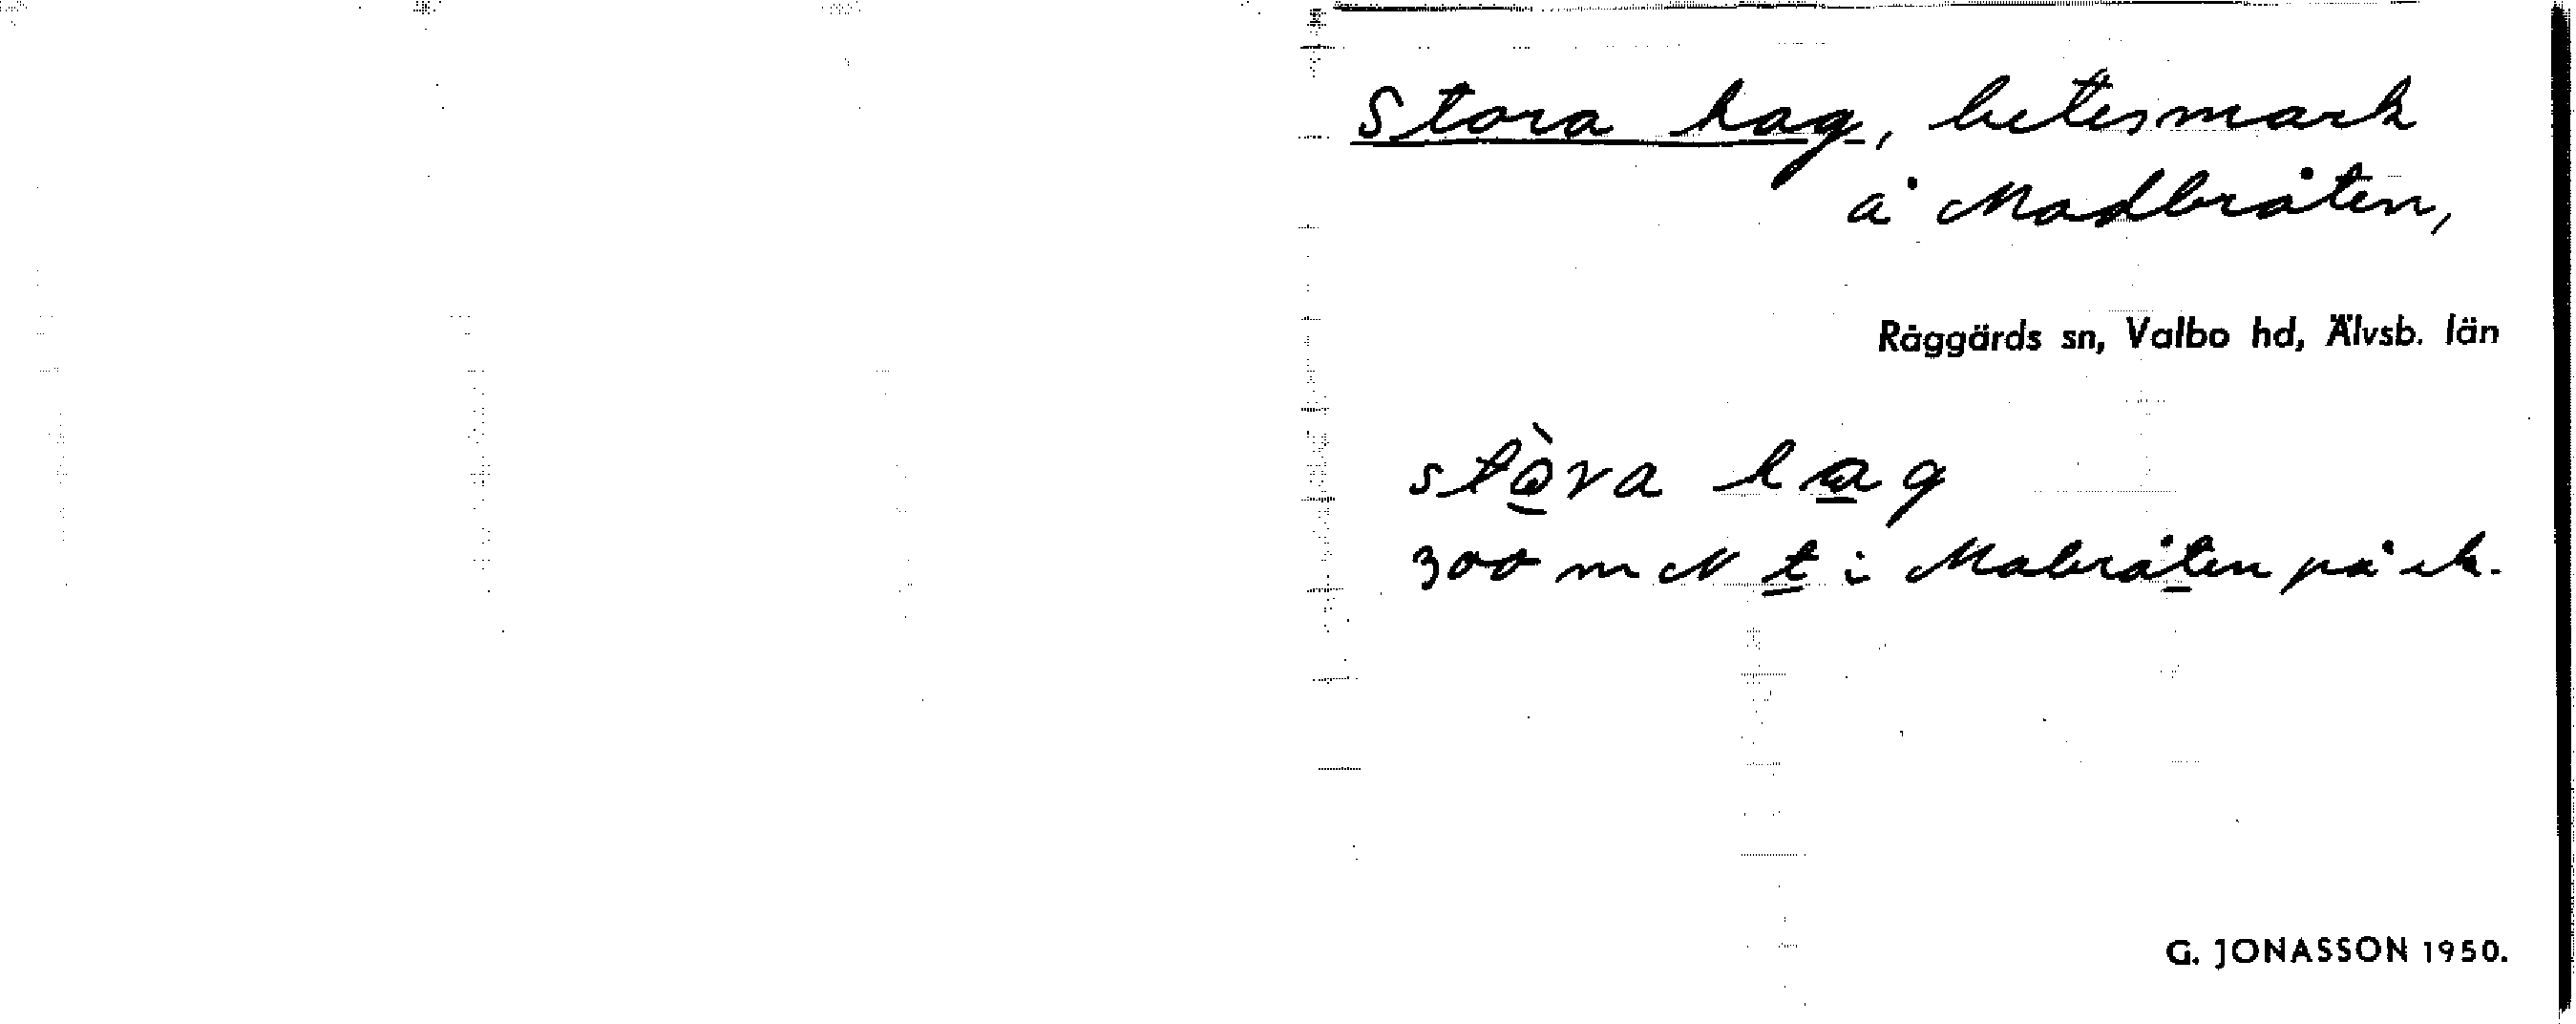 Stora hag, betesmark
å Madbråten,
Råggärds sn, Valbo hd, Älvsb. län
stòra hag
300 m N t i Mabråten på ek.
G. JONASSON 1950.